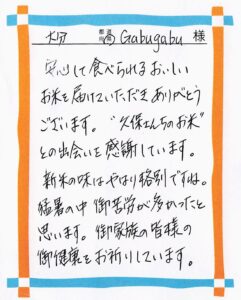 大分 都道府県 Gabugabu 様
安心して食べられるおいしい
お米を届けていただきありがとう
ございます。“久保さんちのお米”
との出会いを感謝しています。
新米の味はやはり格別ですね。
猛暑の中御苦労が多かったと
思います。御家族の皆様の
御健康をお祈りしています。